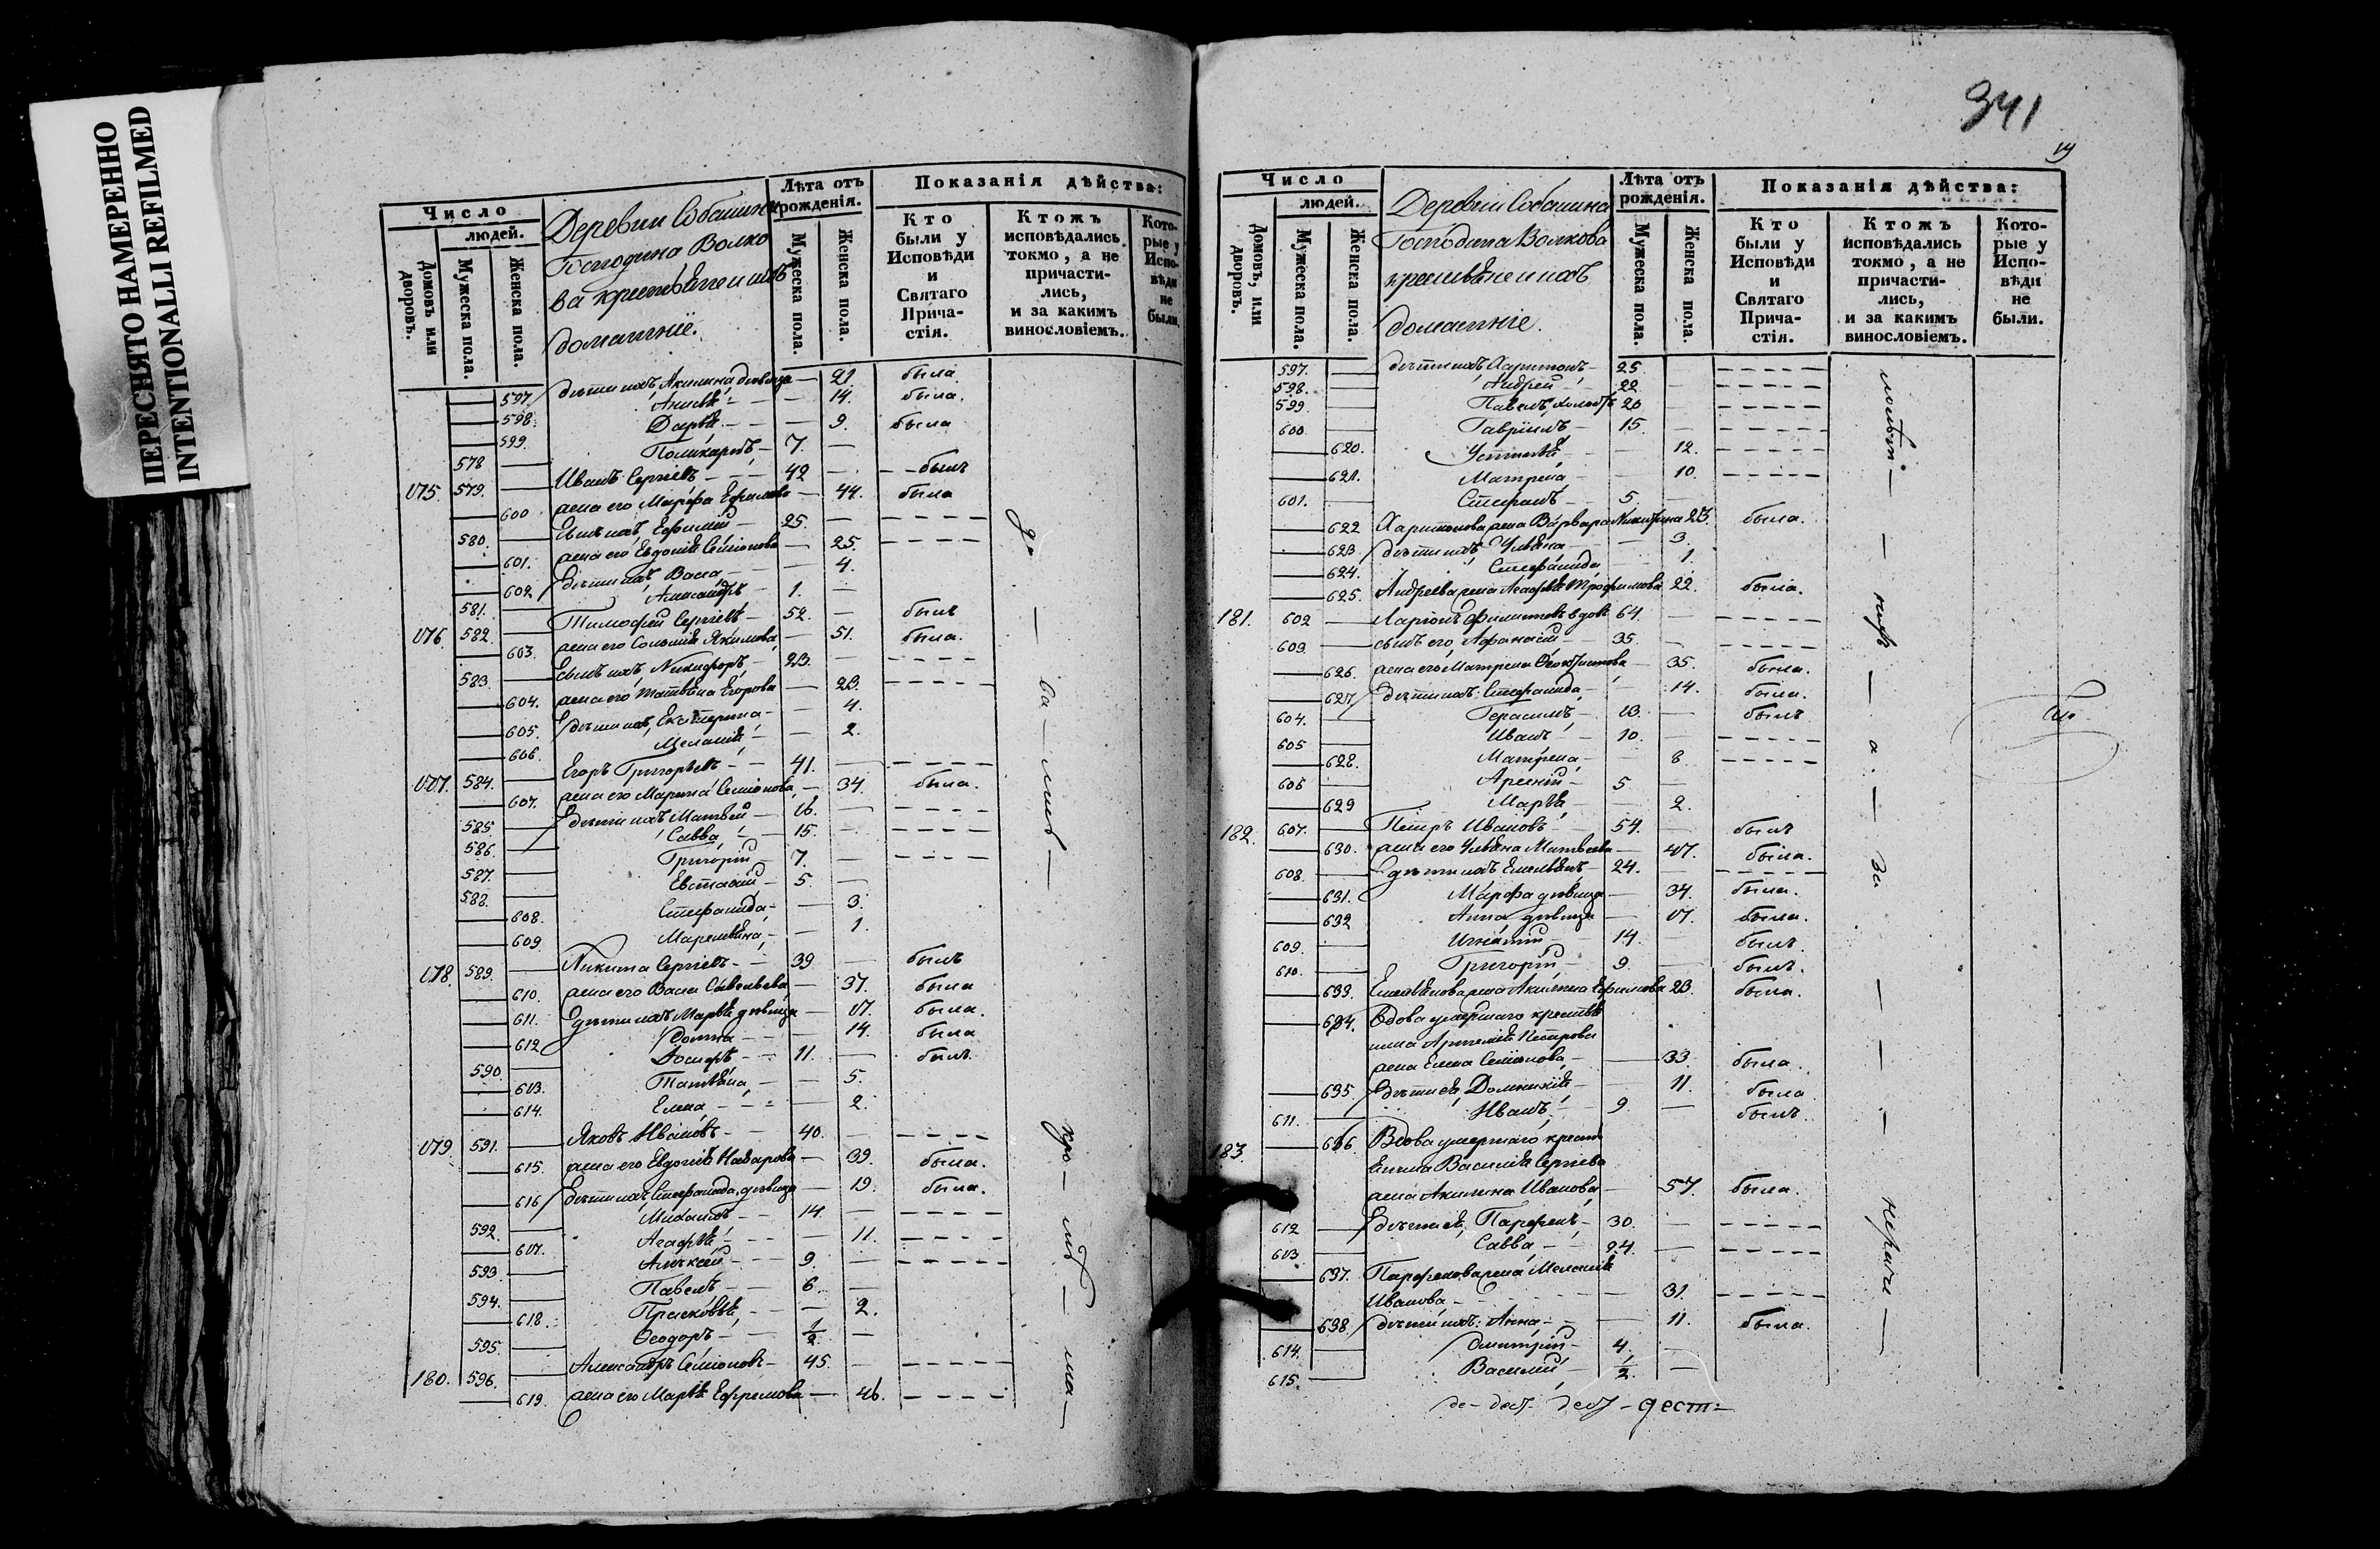 ПЕРЕСНЯТО НАМЕРЕННО
INTENTIONALLI REFILMED
Число
людей.
Домовъ или дворовъ.
Мужеска пола.
Женска пола.
Деревни Собакина
Господина Волко
ва крестьяне и ихъ
домашніе.
Лѣта отъ рожденія.
Мужеска пола.
Женска пола.
Показанія дѣйства:
Кто были у Исповѣди и Святаго Прича- стія.
Ктожъ исповѣдались токмо, а не причасти- лись, и за какимъ винословіемъ.
Кото- рые у Испо- вѣди не были.
597. дѣти ихъ Акилина дѣвица — 21 была
598. Анисья — 14. была.
599. Дарья — 9. была
578 Поликарпъ — 7.
175 579. Иванъ Сергѣевъ — 42 — былъ
600 жена его Марѳа Ефимова — 44. была
580. Сынъ ихъ Ефимій — 25.
601. жена его Евдокія Семіонова — 25.
602 дѣти ихъ Васса — 4.
581. Александръ — 1.
176 582. Тимофей Сергѣевъ — 52. былъ
603. жена его Соломія Якимова — 51. была.
583. Сынъ ихъ Никифоръ — 23.
604. жена его Татьяна Егорова — 23.
605. дѣти ихъ Екатерина — 4.
606. Меланія — 2.
177. 584. Егоръ Григорьевъ — 41.
607. жена его Марина Семіонова — 34. была.
585. дѣти ихъ Матвей — 16.
586. Савва — 15.
587. Григорій — 7.
588. Евстафій — 5.
608. Стефанида — 3.
609. Маремьяна — 1.
178. 589. Никита Сергѣевъ — 39. былъ
610. жена его Васса Савельева — 37. была
611. дѣти ихъ Марья дѣвица — 17. была.
612 Домна — 14. была
590. Іосифъ — 11. былъ
613. Татьяна — 5.
614. Елена — 2.
179. 591. Яковъ Ивановъ — 40.
615. жена его Евдокія Назарова — 39. была.
616 дѣти ихъ Стефанида, дѣвица — 19. была.
592. Михаилъ — 14.
617. Агафья — 11.
593 Алексѣй — 9.
594. Павелъ — 6.
618. Прасковья — 2.
595. Ѳеодоръ — 1/2
180. 596. Александръ Семіоновъ — 45.
619. жена его Марья Ефремова — 46.
341
Число
людей.
Домовъ, или дворовъ.
Мужеска пола.
Женска пола.
Деревни Собакина
Господина Волкова
крестьяне и ихъ
домашніе.
Лѣта отъ рожденія.
Мужеска пола.
Женска пола.
Показанія дѣйства:
Кто были у Исповѣди и Святаго Прича- стія.
Ктожъ исповѣдались токмо, а не причасти- лись, и за какимъ винословіемъ.
Кото- рые у Испо- вѣди не были.
597. дѣти ихъ Харитонъ — 25
598. Андрей — 22
599 Павелъ 20
600 Гавріилъ — 15.
620. Устинья — 12.
621. Матрена — 10.
601. Стефанъ — 5.
622 Харитонова жена Варвара Никитина 23. была.
623. дѣти ихъ Ульяна — 3.
624. Стефанида 1.
625. Андреева жена Агафья Трофимова 22. была.
181. 602 Ларіонъ Филиповъ вдовъ 64.
603 сынъ его, Афанасій — 35.
626. жена его Матрена — 35. была.
627 дѣти ихъ: Стефанида — 14. была.
604. Герасимъ — 13. былъ
605 Иванъ — 10.
628. Матрена — 8
606 Арсеній — 5
629 Марья — 2.
182. 607. Петръ Ивановъ — 54. былъ
630. жена его Ульяна Матвѣева — 47. была.
608. дѣти ихъ Емельянъ — 24.
631. Марфа дѣвица — 34. была.
632 Анна дѣвица — 17. была.
609. Игнатій — 14. былъ
610. Григорій — 9. былъ.
633. Емельянова жена Акилина Ефимова 23. была.
634. Вдова умершаго крестья
нина Артемія Петрова
жена Елена Семіонова — 33. была.
635 дѣти ея, Домникія — 11. была
611. Иванъ — 9. былъ
183. 636 Вдова умершаго кресть
янина Василія Сергѣева
жена Акилина Иванова — 57. была.
612 дѣти ея, Парфенъ — 30.
613 Савва — 24.
637. Парфенова жена Меланія
Иванова — 31.
638. дѣти ихъ: Анна — 11. была.
614. Дмитрій — 4.
615. Василій — 1/2